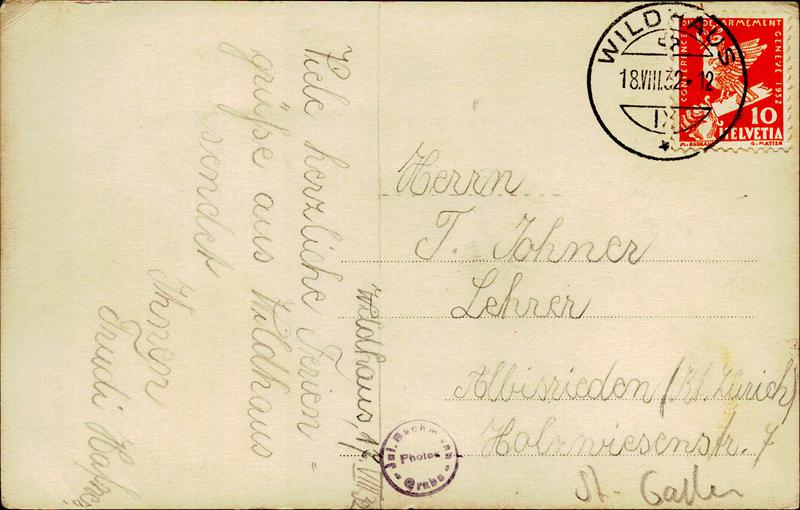 WILDHAUS
18.VIII.32-12
IX
CONFERENCE DU DESARMEMENT GENEVE 1932
10
HELVETIA
G. MATTER
Wildhaus, VIII 32
Viele herzliche Ferien-
grüße aus Wildhaus
sendet
Ihnen
Trudi
Herrn
T. Johner
Lehrer
Albisrieden (Kt. Zürich)
Holzwiesenstr. 7
St. Gallen
Jul. Bachmann
Photo
Grabs